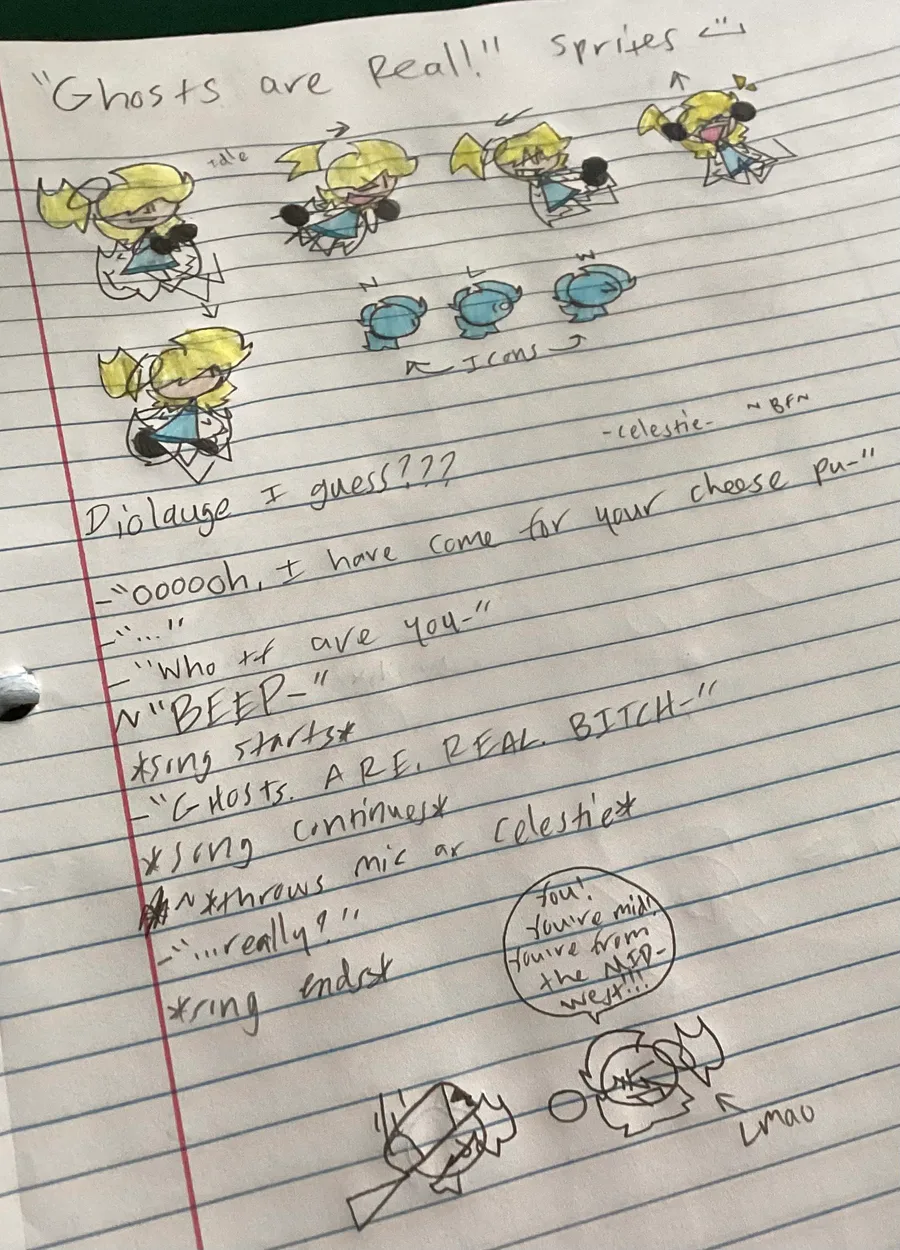 "Ghosts are Real!" sprites :)
idle
N L W
Icons
-celestie- ~BF~
Diolauge I guess???
-"oooooh, I have come for your cheese pu-"
-"..."
-"Who tf are you-"
~"BEEP-"
*song starts*
-"GHOSTS. ARE. REAL. BITCH-"
*song continues*
~*throws mic at celestie*
-"...really?"
*song ends*
You!
You're mid!
You're from
the MID-
west!!!
Lmao